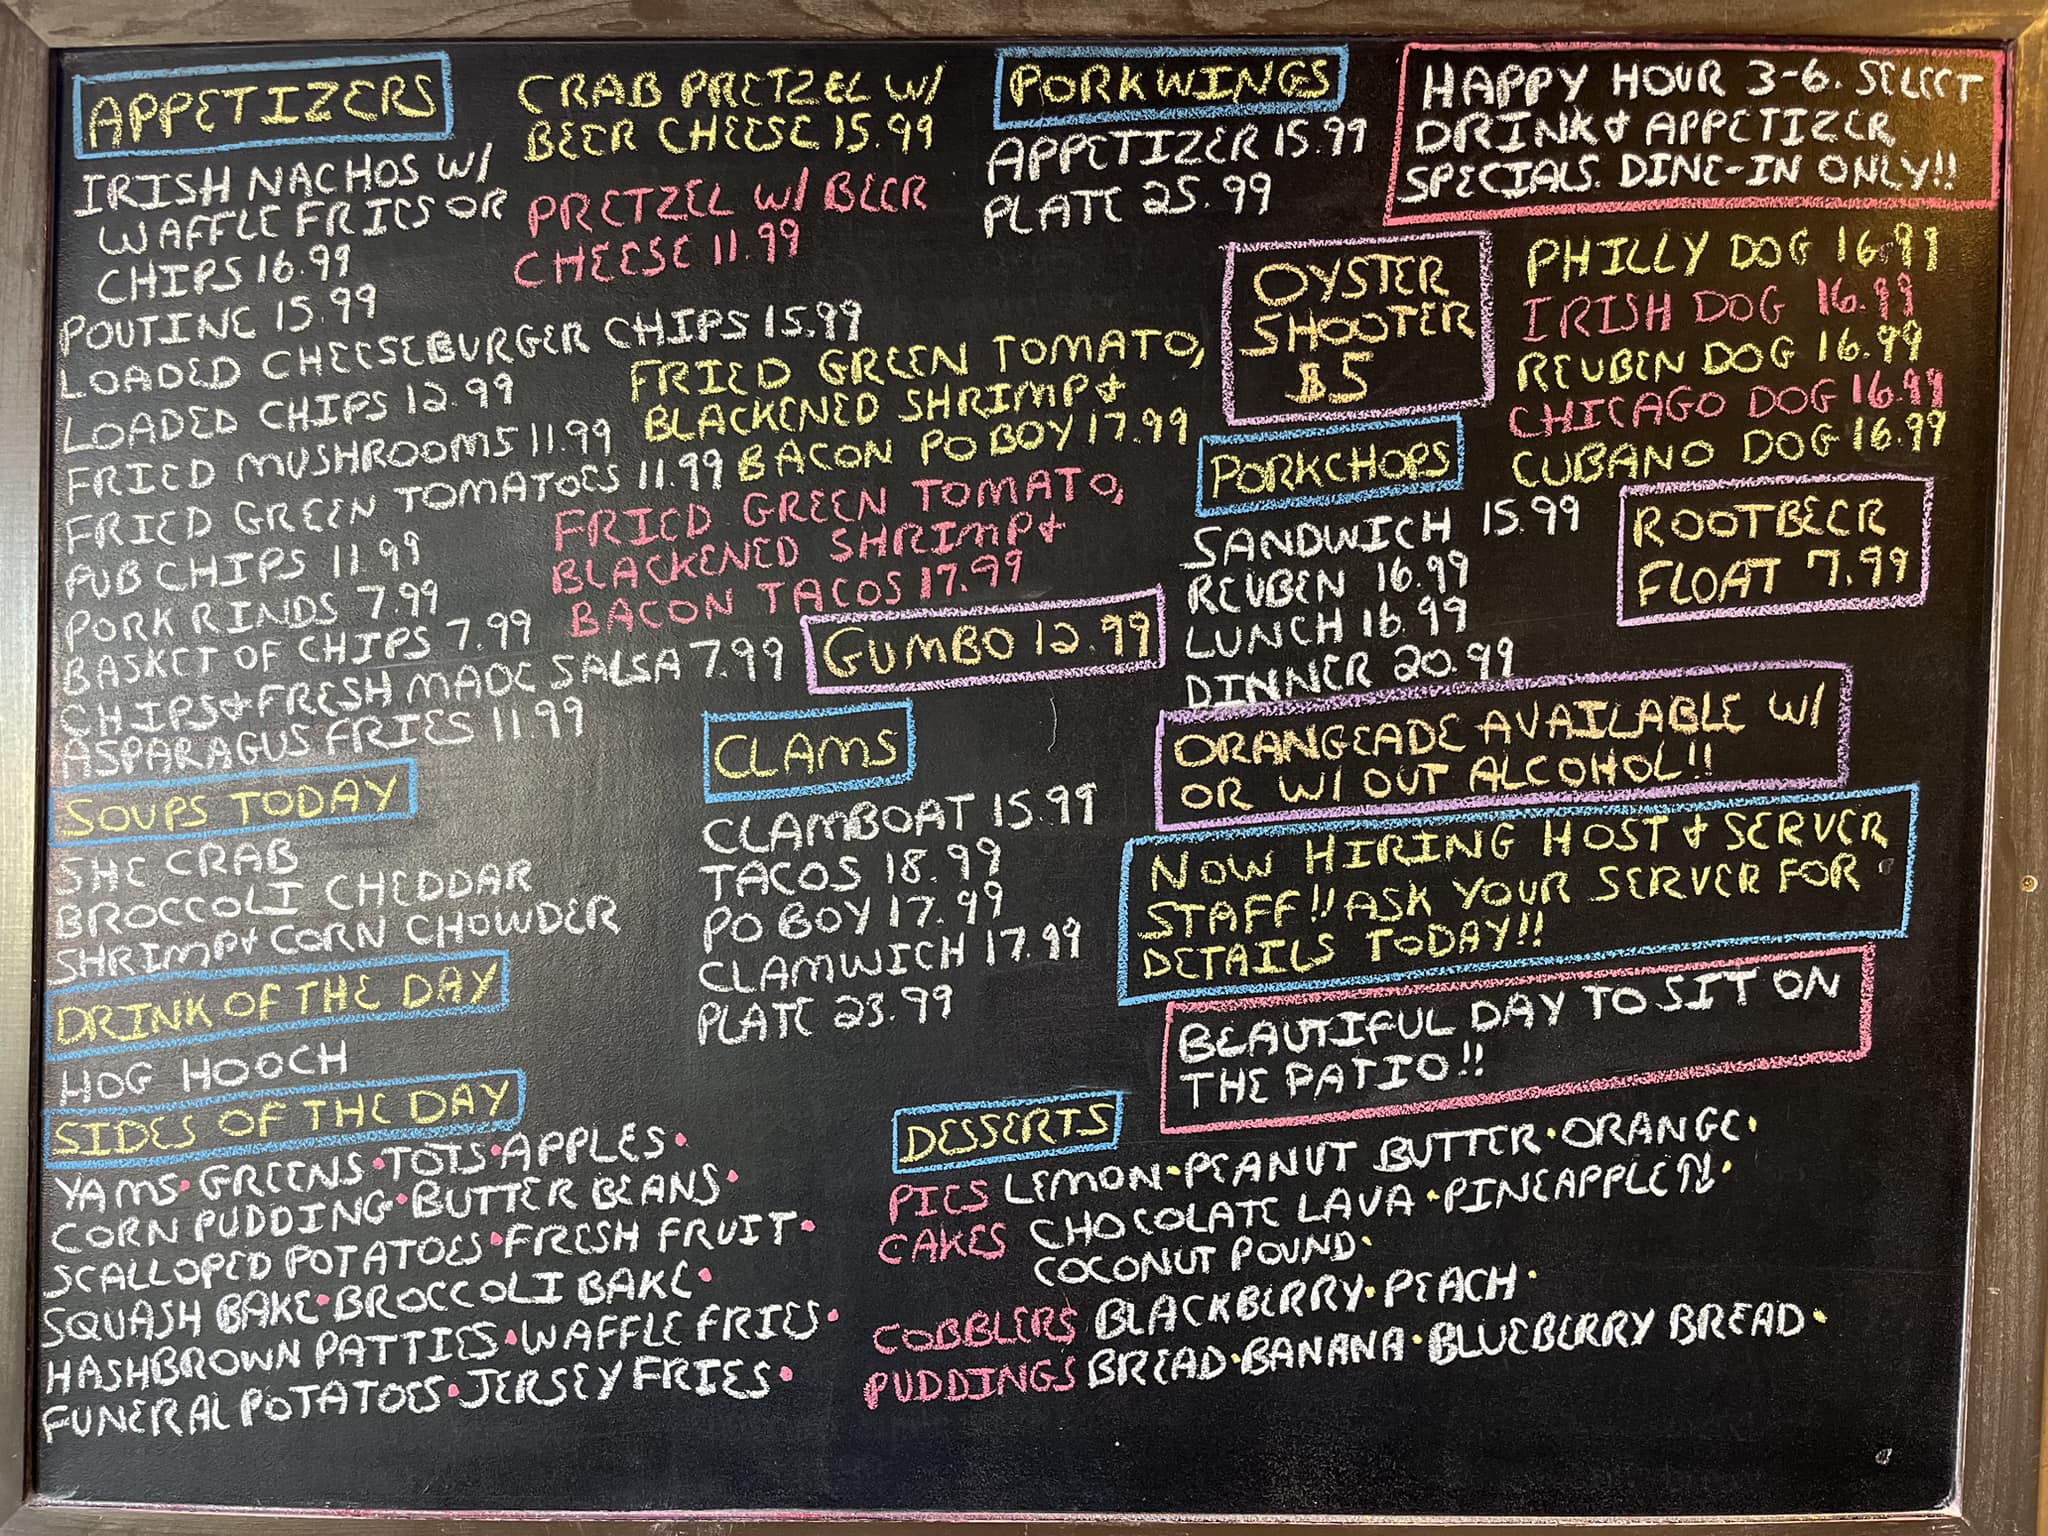 APPETIZERS
IRISH NACHOS W/
WAFFLE FRIES OR
CHIPS 16.99
POUTINE 15.99
LOADED CHEESEBURGER CHIPS 15.99
LOADED CHIPS 12.99
FRIED MUSHROOMS 11.99
FRIED GREEN TOMATOES 11.99
PUB CHIPS 11.99
PORK RINDS 7.99
BASKET OF CHIPS 7.99
CHIPS & FRESH MADE SALSA 7.99
ASPARAGUS FRIES 11.99
CRAB PRETZEL W/
BEER CHEESE 15.99
PRETZEL W/ BEER
CHEESE 11.99
FRIED GREEN TOMATO,
BLACKENED SHRIMP &
BACON PO BOY 17.99
FRIED GREEN TOMATO,
BLACKENED SHRIMP &
BACON TACOS 17.99
GUMBO 12.99
PORKWINGS
APPETIZER 15.99
PLATE 25.99
HAPPY HOUR 3-6. SELECT
DRINK & APPETIZER
SPECIALS. DINE-IN ONLY!!
OYSTER
SHOOTER
$5
PHILLY DOG 16.99
IRISH DOG 16.99
REUBEN DOG 16.99
CHICAGO DOG 16.99
CUBANO DOG 16.99
PORKCHOPS
SANDWICH 15.99
REUBEN 16.99
LUNCH 16.99
DINNER 20.99
ROOTBEER
FLOAT 7.99
ORANGEADE AVAILABLE W/
OR W/OUT ALCOHOL!!
NOW HIRING HOST & SERVER
STAFF!! ASK YOUR SERVER FOR
DETAILS TODAY!!
BEAUTIFUL DAY TO SIT ON
THE PATIO!!
SOUPS TODAY
SHE CRAB
BROCCOLI CHEDDAR
SHRIMP & CORN CHOWDER
CLAMS
CLAMBOAT 15.99
TACOS 18.99
PO BOY 17.99
CLAMWICH 17.99
PLATE 23.99
DRINK OF THE DAY
HOG HOOCH
SIDES OF THE DAY
YAMS • GREENS • TOTS • APPLES •
CORN PUDDING • BUTTER BEANS •
SCALLOPED POTATOES • FRESH FRUIT •
SQUASH BAKE • BROCCOLI BAKE •
HASHBROWN PATTIES • WAFFLE FRIES •
FUNERAL POTATOES • JERSEY FRIES •
DESSERTS
PIES LEMON • PEANUT BUTTER • ORANGE •
CAKES CHOCOLATE LAVA • PINEAPPLE ↑↓ •
COCONUT POUND •
COBBLERS BLACKBERRY • PEACH •
PUDDINGS BREAD • BANANA • BLUEBERRY BREAD •